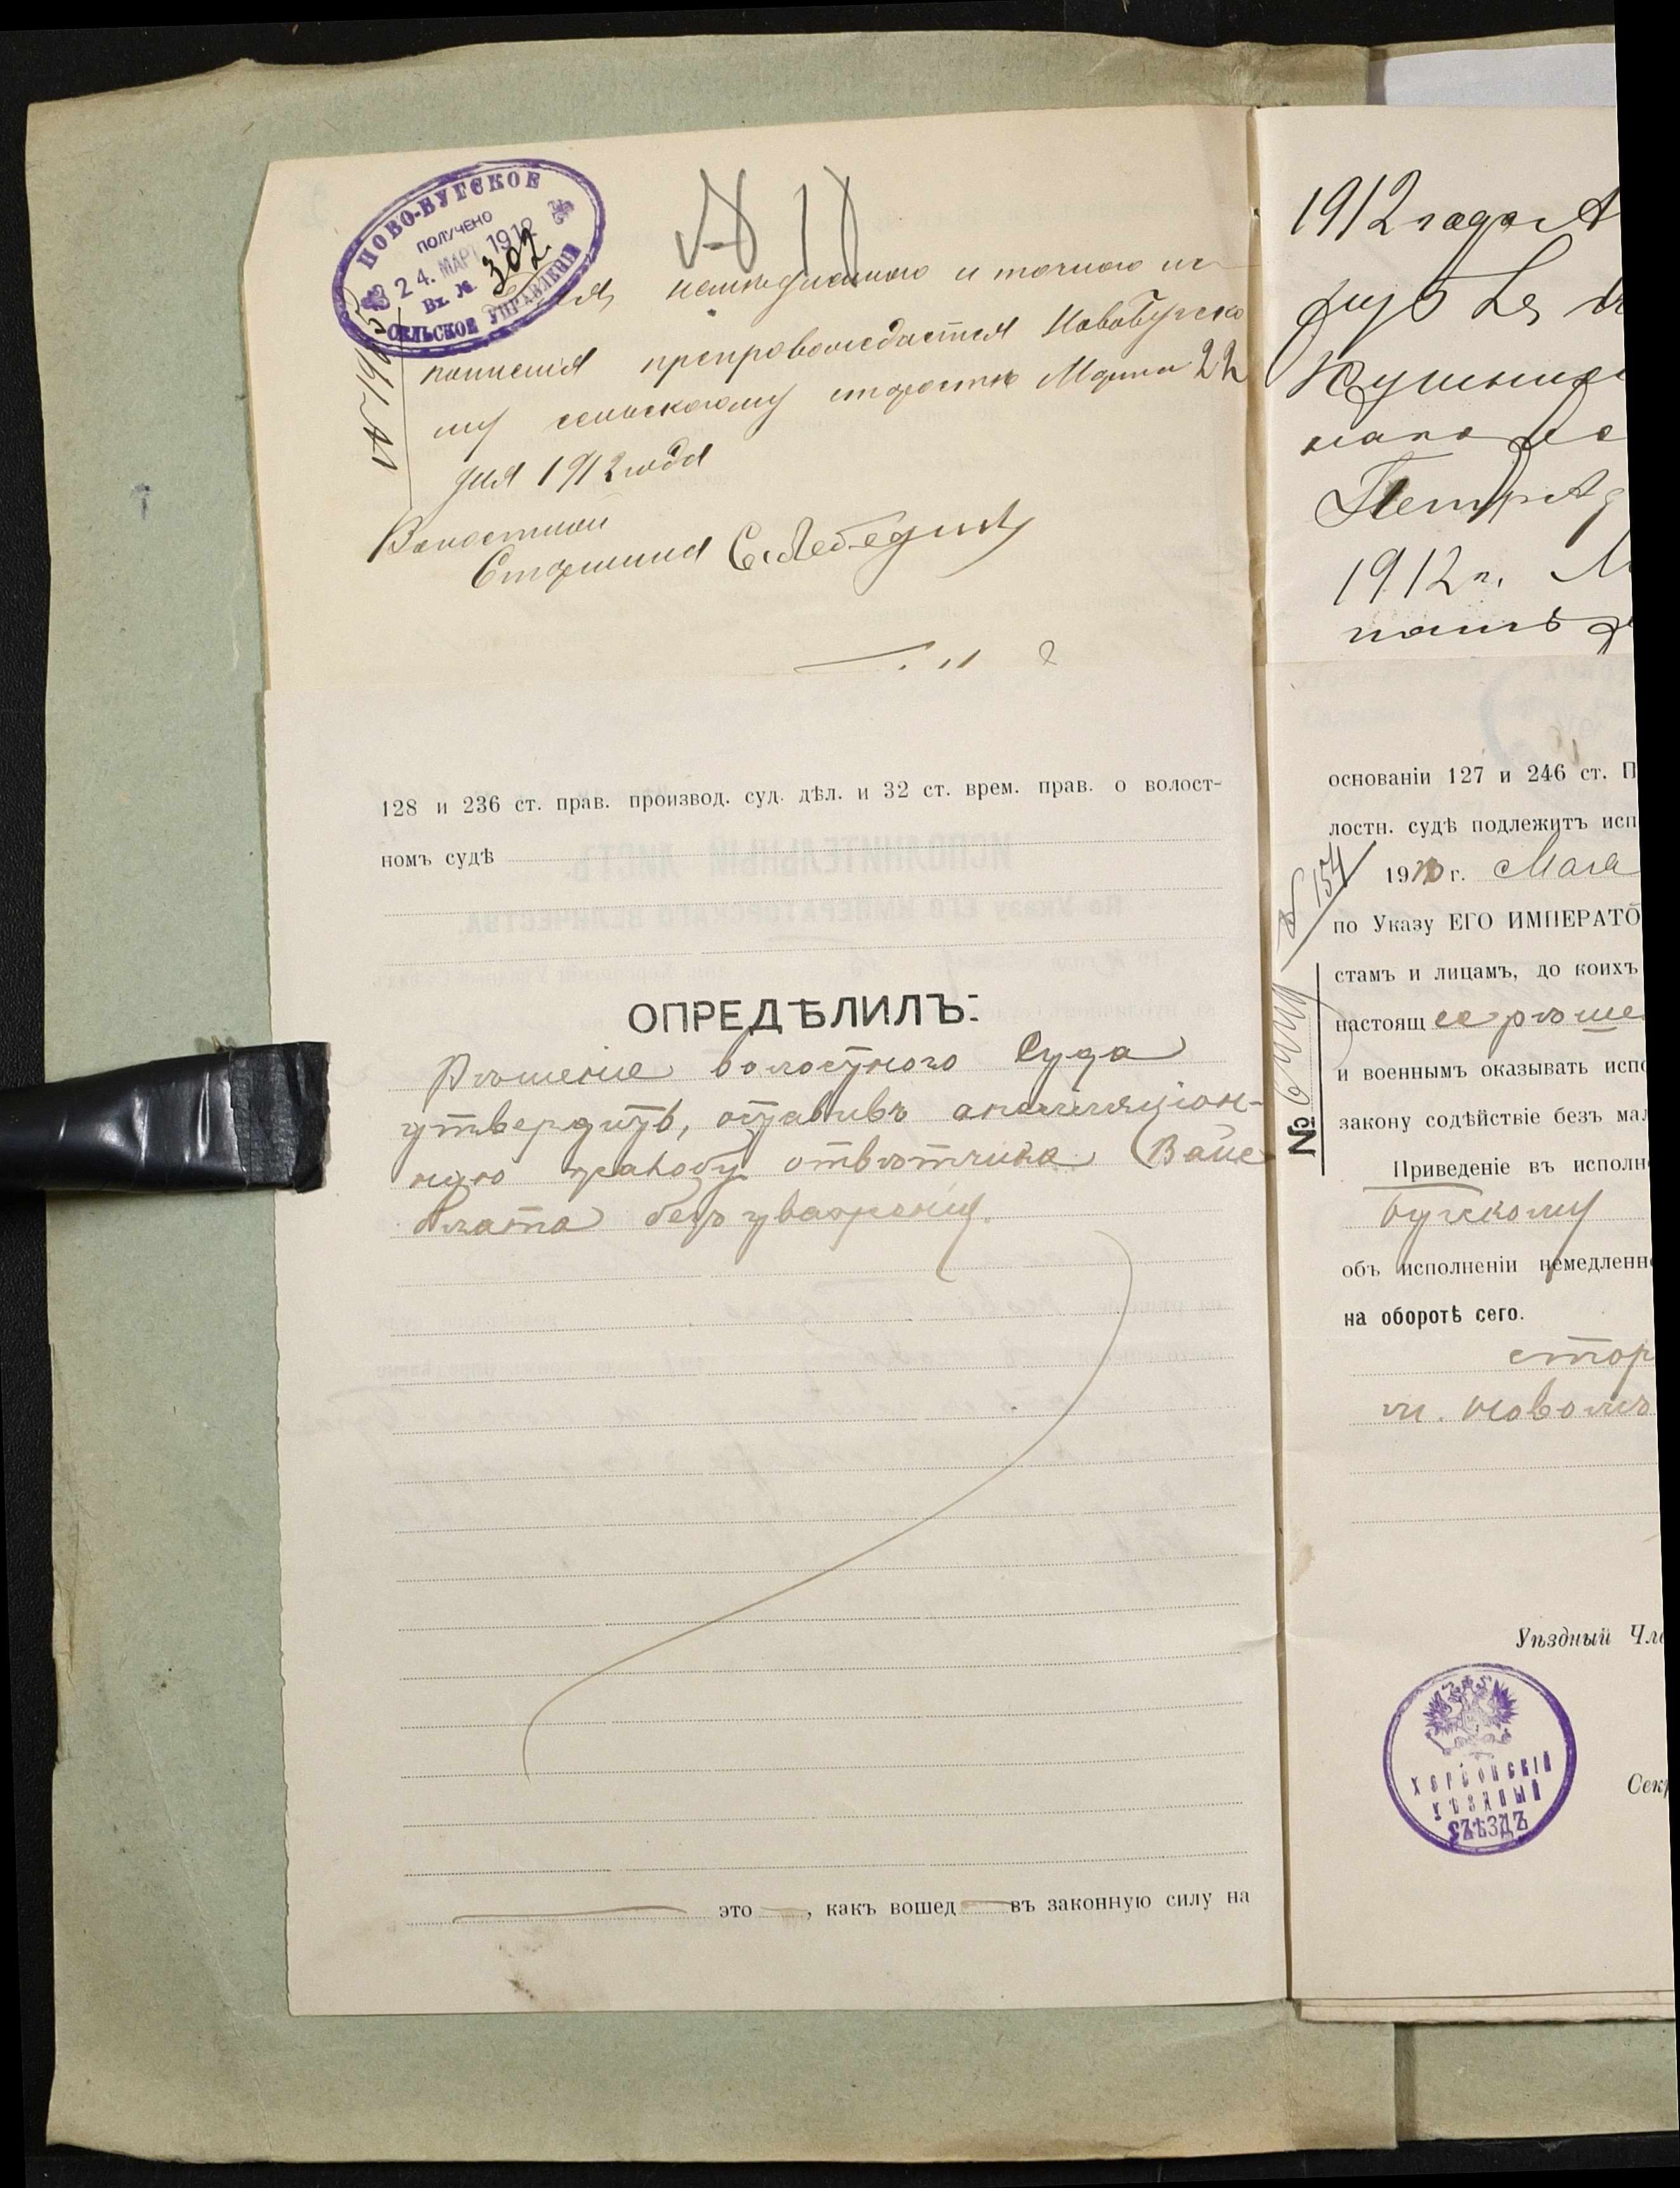 НОВО-БУГСКОЕ
ПОЛУЧЕНО
24. МАР. 1912
Вх. № 302
СЕЛЬСКОЕ УПРАВЛЕНІЕ
и точного ис-
полненія препровождается Новобугско
му сельскому старостѣ Марта 22
дня 1912 года
Волостной
Старшина С. Лебедин
128 и 236 ст. прав. производ. суд. дѣл. и 32 ст. врем. прав. о волост-
номъ судѣ
ОПРЕДѢЛИЛЪ:
Рѣшеніе волостного Суда
утвердить, оставивъ апелляціон-
ную жалобу отвѣтчика Вайс
блата безъ уваженія.
это , какъ вошед въ законную силу на
1912 года А
руб
Кушнир
Петр
1912 г. М
основаніи 127 и 246 ст. П
лостн. судѣ подлежитъ исп
№ 154
1910 г. Мая
по Указу ЕГО ИМПЕРАТО
стамъ и лицамъ, до коихъ
настоящее рѣше
и военнымъ оказывать испо
закону содѣйствіе безъ мал
№
Приведеніе въ исполне
Бугскому
объ исполненіи немедленно
на оборотѣ сего.
стор
м. Новомъ
Уѣздный Чле
ХЕРСОНСКІЙ
УѢЗДНЫЙ
СЪѢЗДЪ
Секр